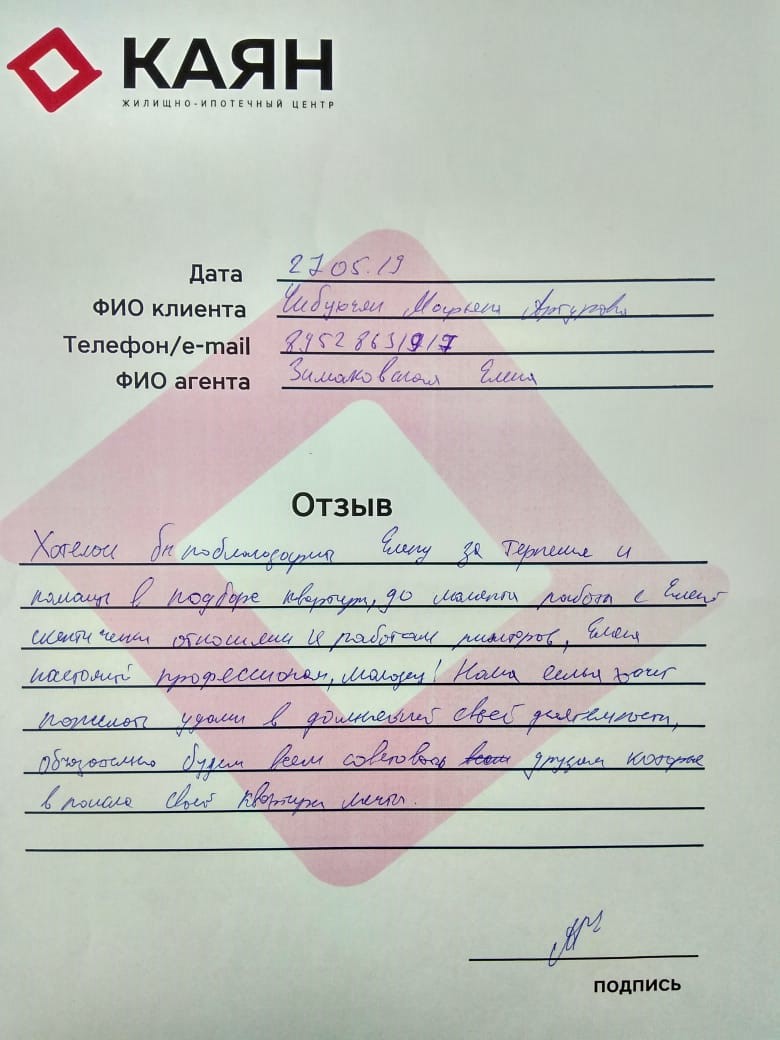 КАЯН
ЖИЛИЩНО-ИПОТЕЧНЫЙ ЦЕНТР
Дата 27 05.19
ФИО клиента Артуровна
Телефон/e-mail 89528631917
ФИО агента Зимаковская Елена
Отзыв
Хотелось бы поблагодарить Елену за терпение и
помощь в подборе квартиры, до момента работы с Еленой
скептически относились к работам риэлторов, Елена
настоящий профессионал, молодец! Наша семья хочет
пожелать удачи в дальнейшей своей деятельности,
обязательно будем всем советовать друзьям которые
в поиске своей квартиры мечты.
ПОДПИСЬ